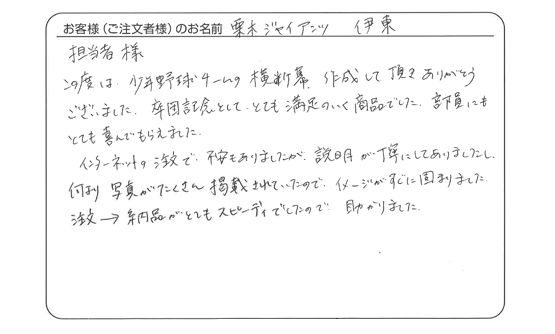 お客様（ご注文者様）のお名前 栗木ジャイアンツ 伊東
担当者 様
この度は、少年野球チームの横断幕、作成して頂き ありがとう
ございました。卒団記念として、とても満足のいく商品でした。部員にも
とても喜んでもらえました。
インターネットの注文で、不安もありましたが、説明が丁寧にしてありましたし、
何より 写真がたくさん 掲載されていたので、イメージがすぐに固まりました。
注文→納品がとてもスピーディでしたので、助かりました。